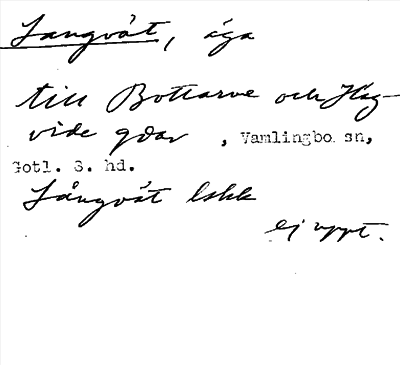 Langvät, äga
till Bottarve och Hag-
vide gdar, Vamlingbo sn,
Gotl. S. hd.
Långvät lskk
ej uppt.